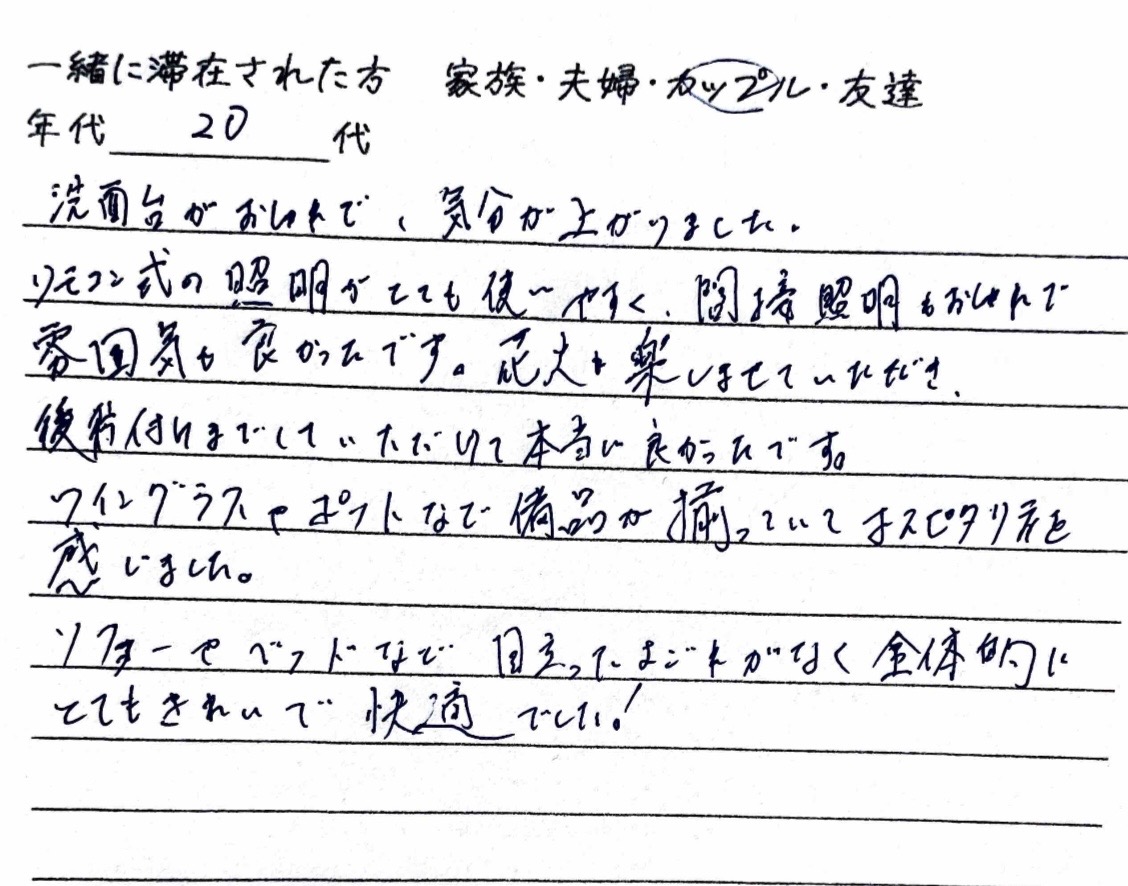 一緒に滞在された方　家族・夫婦・カップル・友達
年代 20 代
洗面台がおしゃれで、気分が上がりました。
リモコン式の照明がとても使いやすく、間接照明もおしゃれで
雰囲気も良かったです。花火も楽しませていただき、
後片付けまでしていただけて本当に良かったです。
ワイングラスやポットなど備品が揃っていてホスピタリティを
感じました。
ソファーやベッドなど目立ったよごれがなく全体的に
とてもきれいで快適でした!